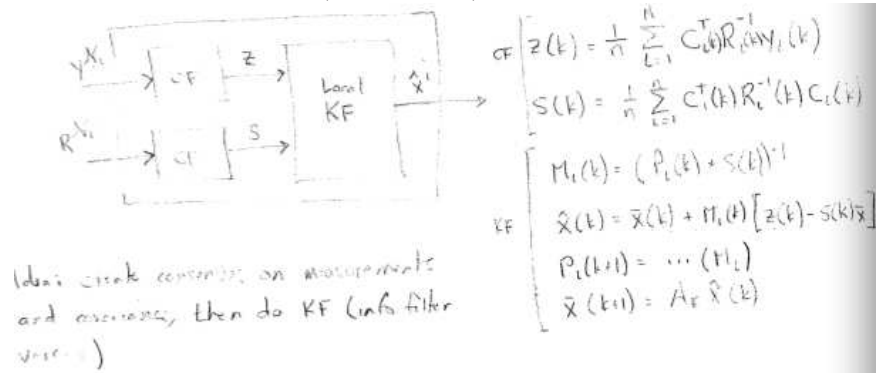 y^{N_i}
CF
Z
Local
KF
x̂^i
R^{N_i}
CF
S
CF
Z(k) = 1/n Σ_{i=1}^{n} C_i^T(k) R_i^{-1}(k) y_i(k)
S(k) = 1/n Σ_{i=1}^{n} C_i^T(k) R_i^{-1}(k) C_i(k)
KF
M_i(k) = (P_i(k) + S(k))^{-1}
x̂(k) = x̄(k) + M_i(k) [z(k) - S(k) x̄]
P_i(k+1) = ... (M_i)
x̄(k+1) = A_k x̂(k)
Idea: create consensus on measurements
and covariance, then do KF (info filter
)